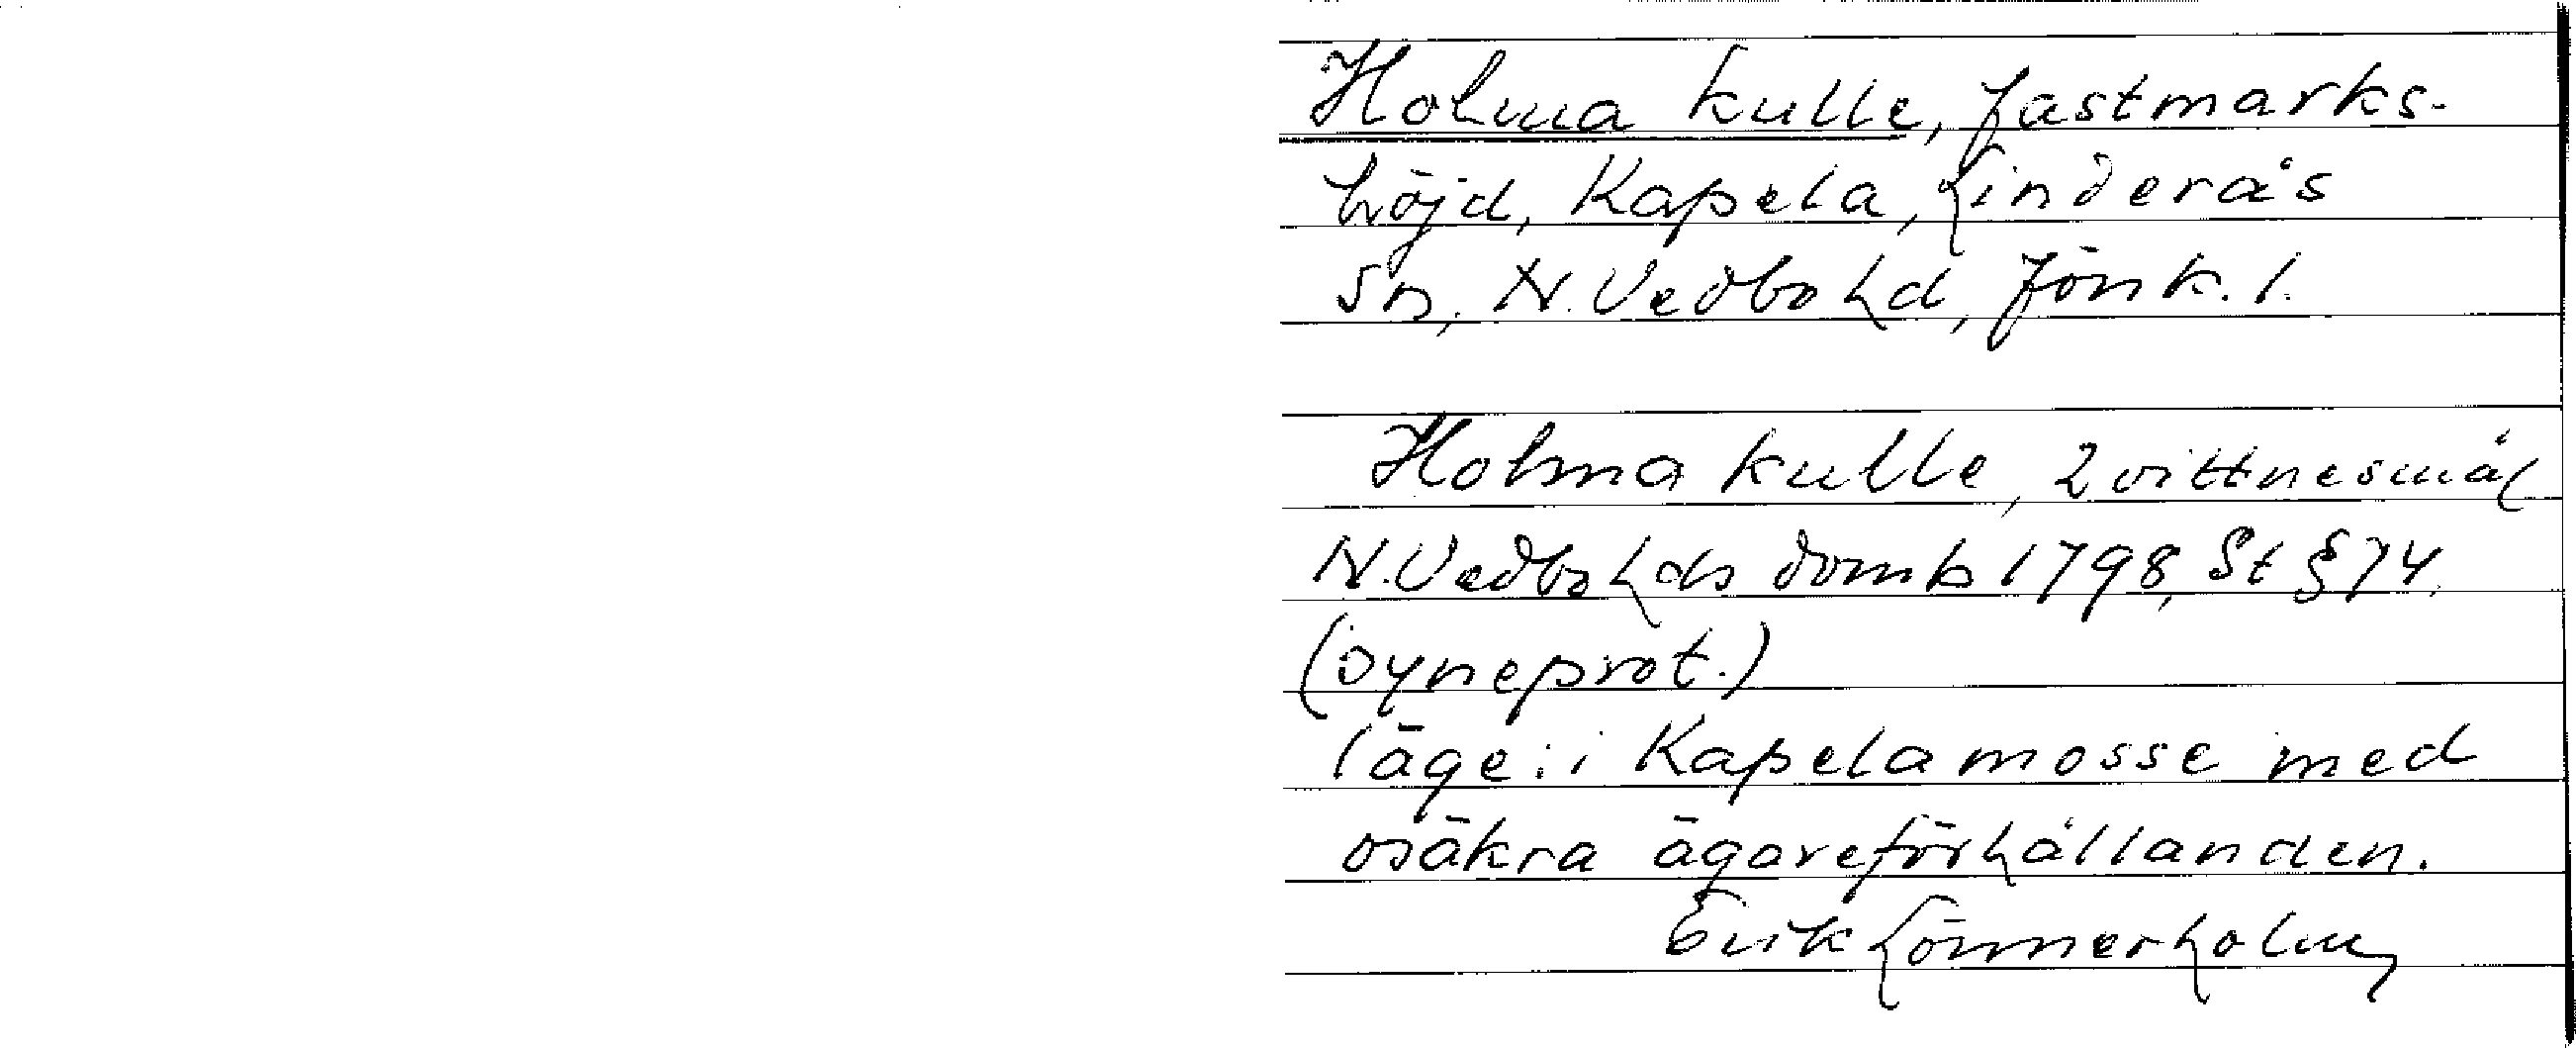 Holma kulle, fastmarks-
höjd, Kapela, Linderås
sn, N. Vedbo hd, Jönk. l.
Holma kulle, 2 vittnesmål
N. Vedbo hds domb 1798, St § 74.
(syneprot.)
läge: i Kapela mosse med
osäkra ägareförhållanden.
Erik Lönnerholm